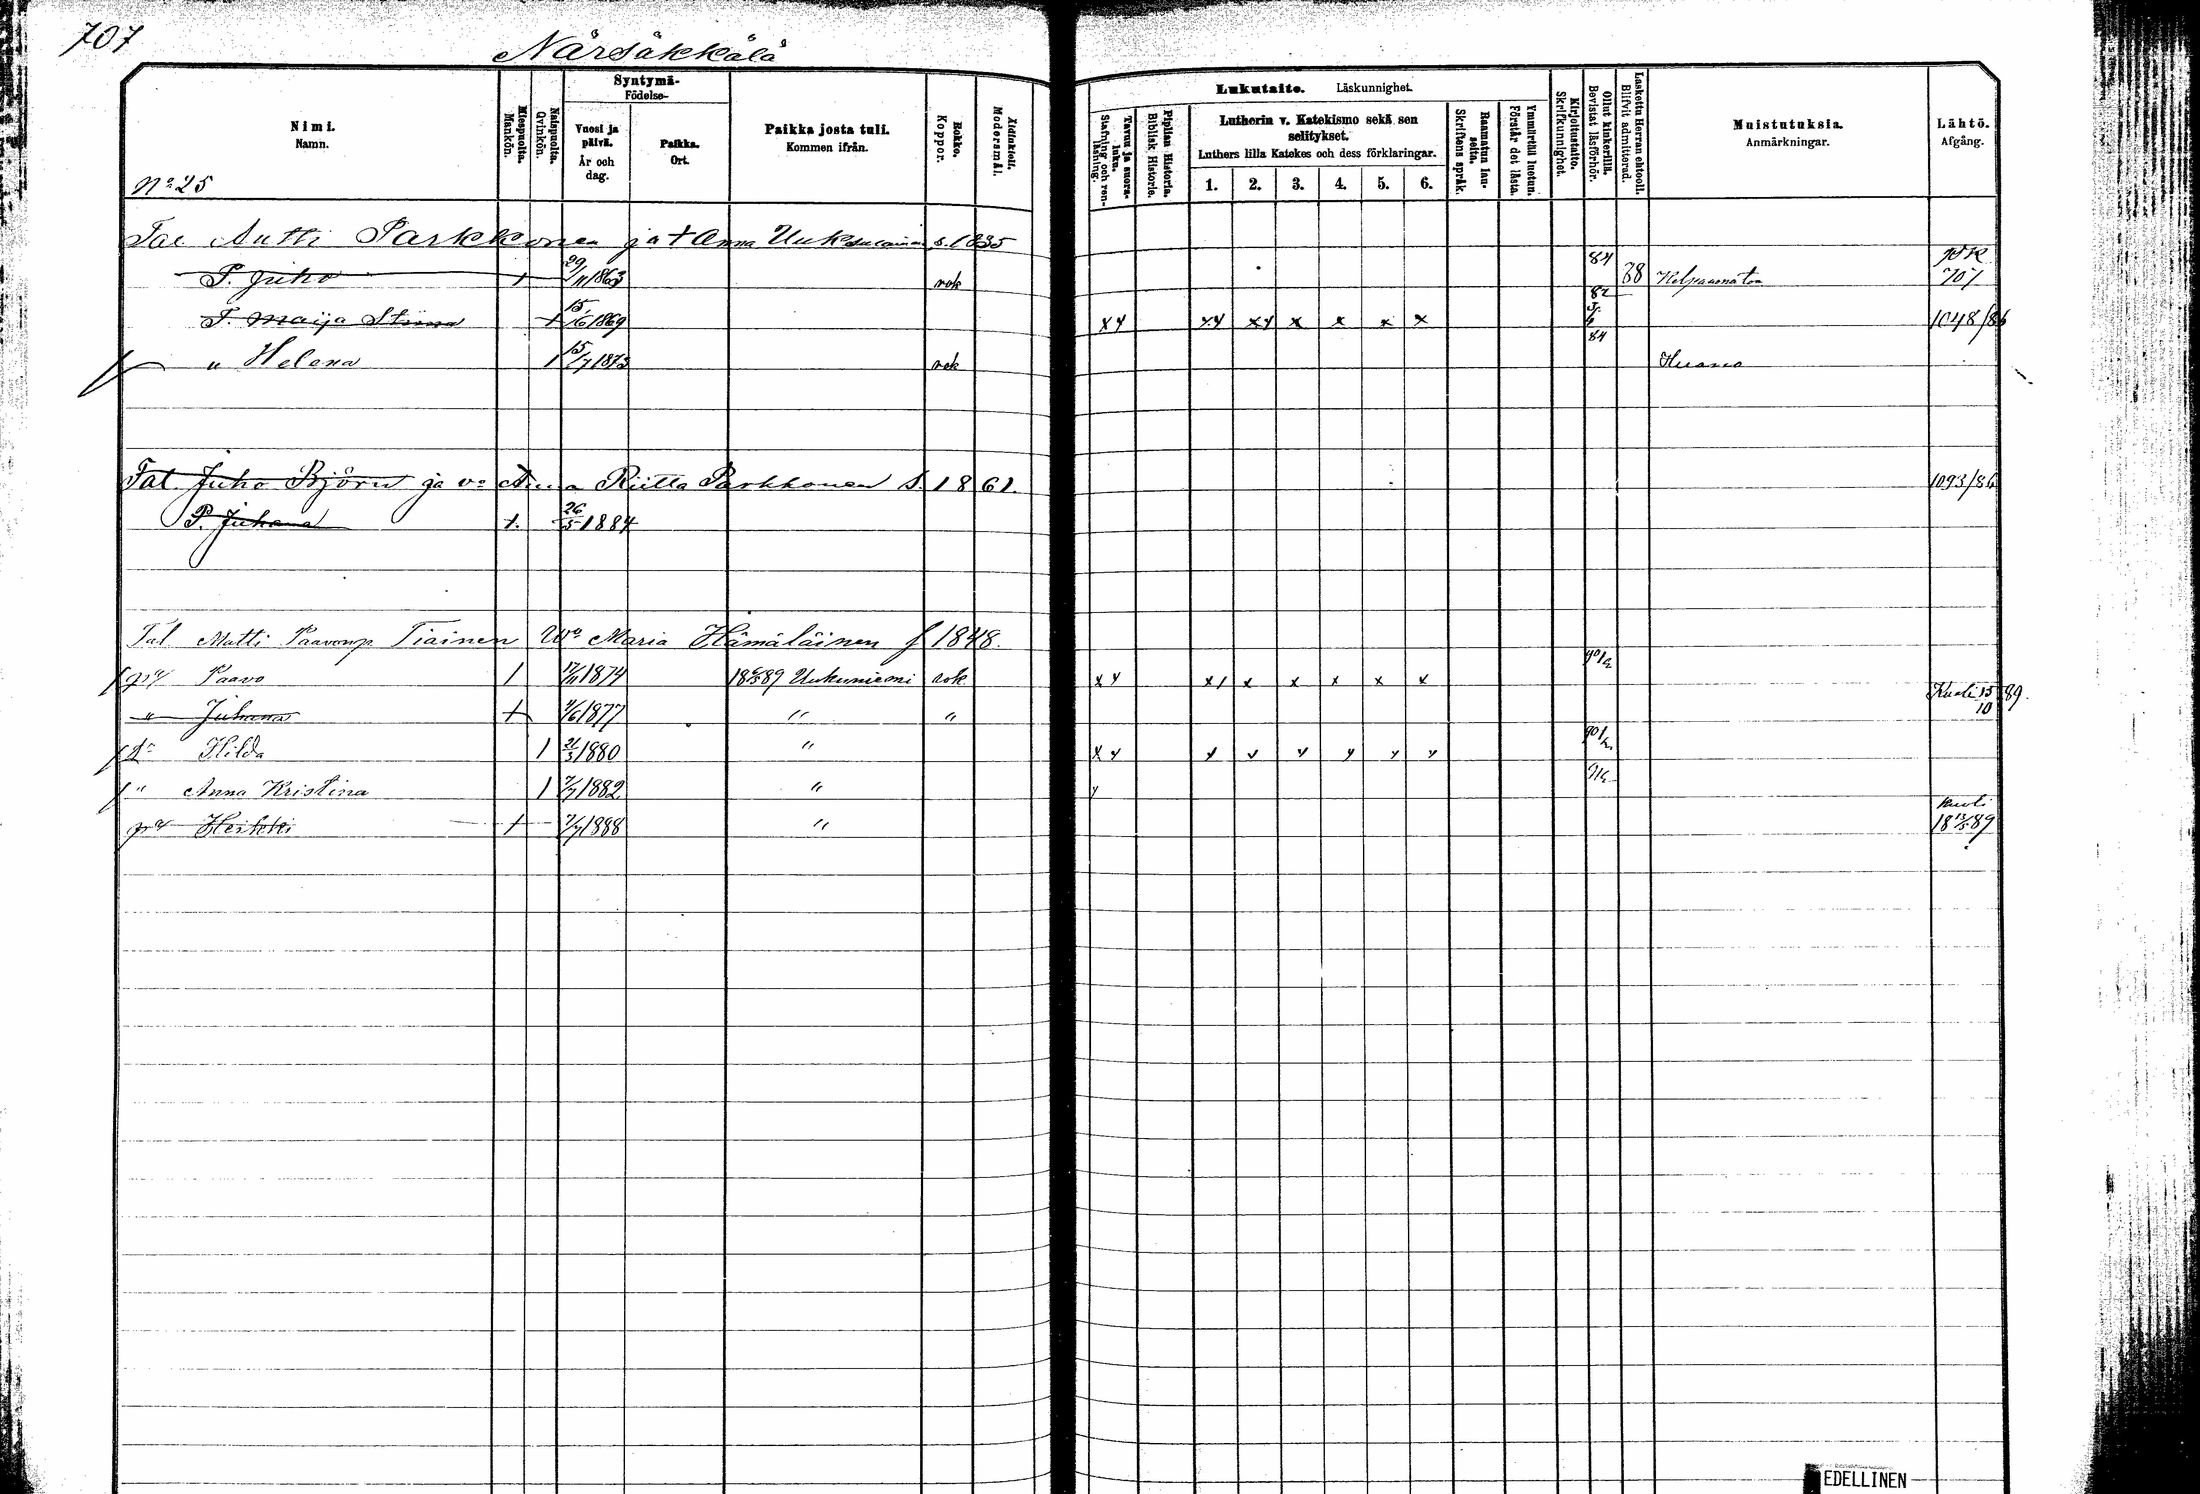 707
Närsäkkälä
Nimi.
Namn.
Miespuolta.
Mankön.
Naispuolta.
Qvinkön.
Syntymä-
Födelse-
Vuosi ja päivä.
År och dag.
Paikka.
Ort.
Paikka josta tuli.
Kommen ifrån.
Rokko.
Koppor.
Äidinkieli.
Modersmål.
Lukutaito. Läskunnighet.
Tavuu ja suora-luku.
Stafning och ren-läsning.
Piplian Historia.
Biblisk Historie.
Lutherin v. Katekismo sekä sen
selitykset.
Luthers lilla Katekes och dess förklaringar.
1. 2. 3. 4. 5. 6.
Raamatun lau-seita.
Skriftens språk.
Ymmärtää luetun.
Förstår det lästa.
Kirjoitustaito.
Skrifkunnighet.
Ollut kinkerillä.
Bevistat läsförhör.
Laskettu Herran ehtooll.
Blifvit admitterad.
Muistutuksia.
Anmärkningar.
Lähtö.
Afgång.
No 25
Tal Antti Parkkonen ja + Anna s. 1835
P. Juho + 29/11 1863 rok 84 88 707
T. Maija Stiina + 15/6 1869 x y x y x y x x x x 82 84 1048/86
" Helena 1 15/7 1873 rok
Tal. Juho Björn ja vo Anna Riitta Parkkonen s. 1861. 1093/86
P. Juhana +. 26/5 1884
Tal Matti Paavonp Tiainen Wo Maria Hämäläinen f 1848.
Paavo 1 17/11 1874 18 89 Uukuniemi rok x y x / x x x x x 90
" Juhana + 4/6 1877 " " Kuoli 15/10 89.
Hilda 1 21/3 1880 " x y y y y y y y 90
" Anna Kristina 1 7/7 1882 " y
Heikki + 7/7 1888 " kuoli
18 13/5 89
EDELLINEN